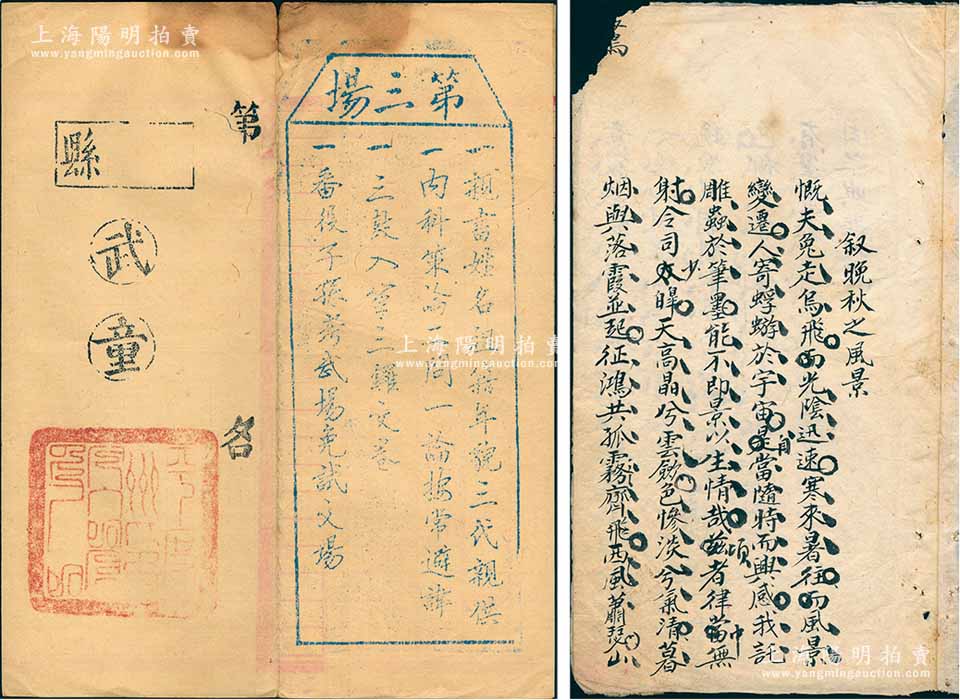 上海陽明拍賣
www.yangmingauction.com
第三場
一親書姓名詞籍年貌三代親供
一內科策論一問一論按常避諱
一三鼓入室三鑼交卷
一番役子孫考武場免試文場
第 名
縣
武
童
上海陽明拍賣
www.yangmingauction.com
叙晚秋之風景
慨夫兔走烏飛而光陰迅速寒來暑往而風景
變遷人寄蜉蝣於宇宙是當隨時而興感我託
自
雕蟲於筆墨能不即景以生情哉茲者律當無
頃
中
射令司少皡天高晶兮雲歛色慘淡兮氣清暮
烟與落霞並起征鴻共孤霧齊飛西風蕭瑟山
上海陽明拍賣
www.yangmingauction.com